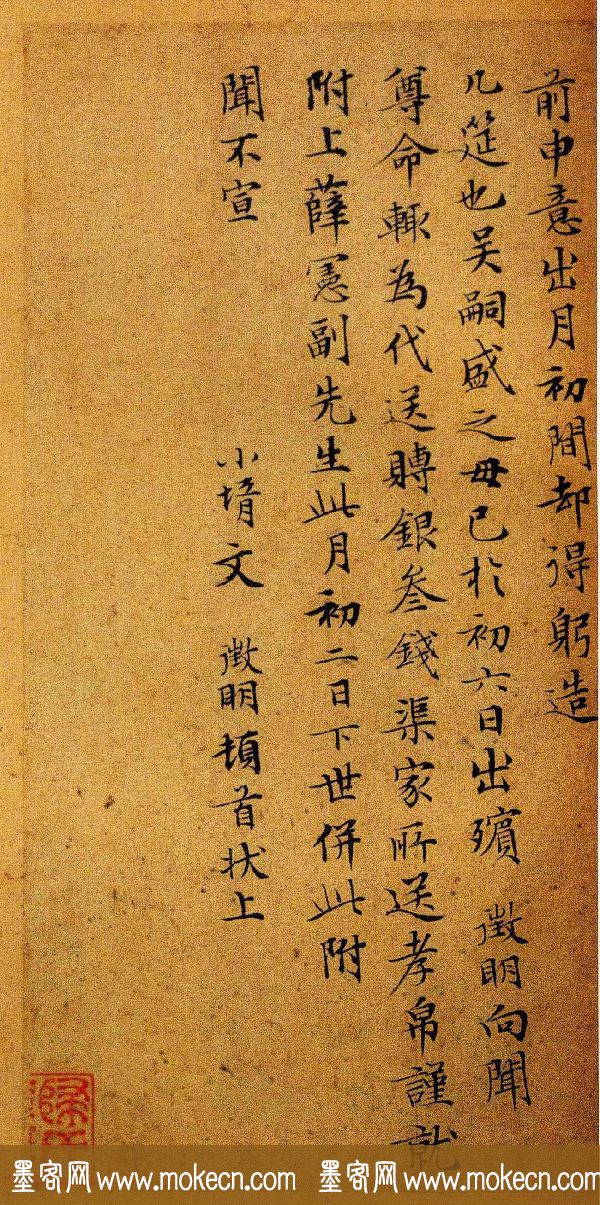 前申意出月初間却得躬造
几筵也吴嗣盛之毋已於初六日出殯 徵明向聞
尊命輒為代送賻銀叁錢渠家所送孝帛謹就
附上薛憲副先生此月初二日下世併此附
聞不宣
小壻文 徵明頓首狀上
墨客网 www.mokecn.com 墨客网 www.mokecn.com